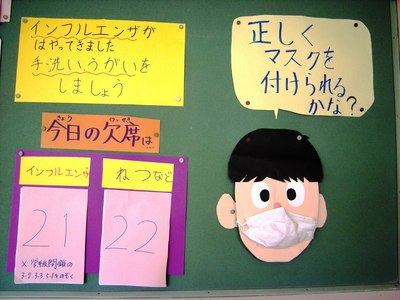 インフルエンザが
はやってきました
手洗いうがいを
しましょう
正しく
マスクを
付けられる
かな?
きょう けっせき
今日の欠席は
インフルエンザ
ねつなど
21
22
×学級閉鎖の
をのぞく